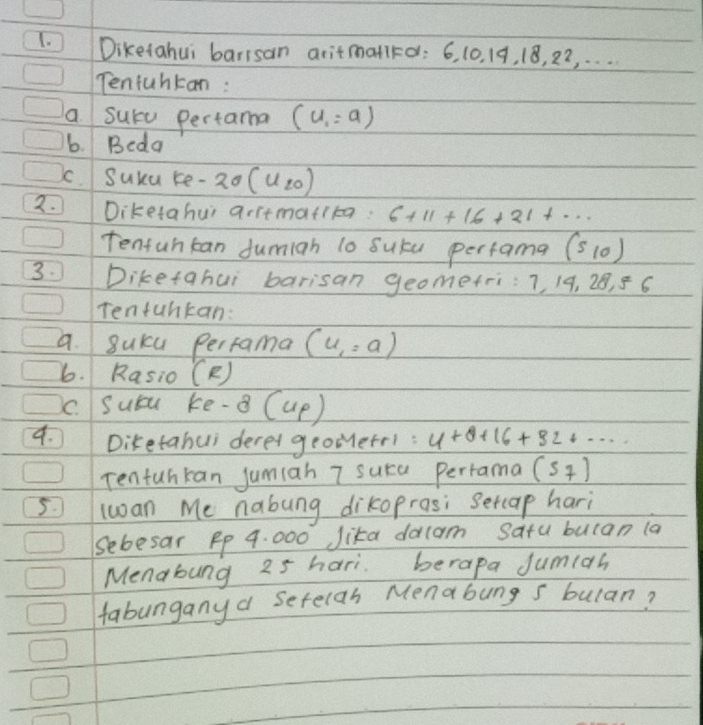 1. Diketahui barisan aritmatika: 6,10,14,18,22,....
Tentuhkan :
a. Suku pertama (U₁=a)
b. Beda
c. Suku ke-20 (U20)
2. Diketahui aritmatika : 6+11+16+21+...
Tentuhkan Jumlah 10 Suku pertama (S10)
3. Diketahui barisan geometri : 7, 14, 28, 56
Tentuhkan:
a. Suku Pertama (U₁=a)
b. Rasio (R)
c. Suku ke-8 (U8)
4. Diketahui deret geometri : 4+8+16+32+....
Tentuhkan jumlah 7 suku Pertama (S7)
5. Iwan Me nabung dikoprasi setiap hari
sebesar Rp 4.000 Jika dalam satu bulan ia
Menabung 25 hari. berapa Jumlah
tabunganya setelah Menabung 5 bulan?